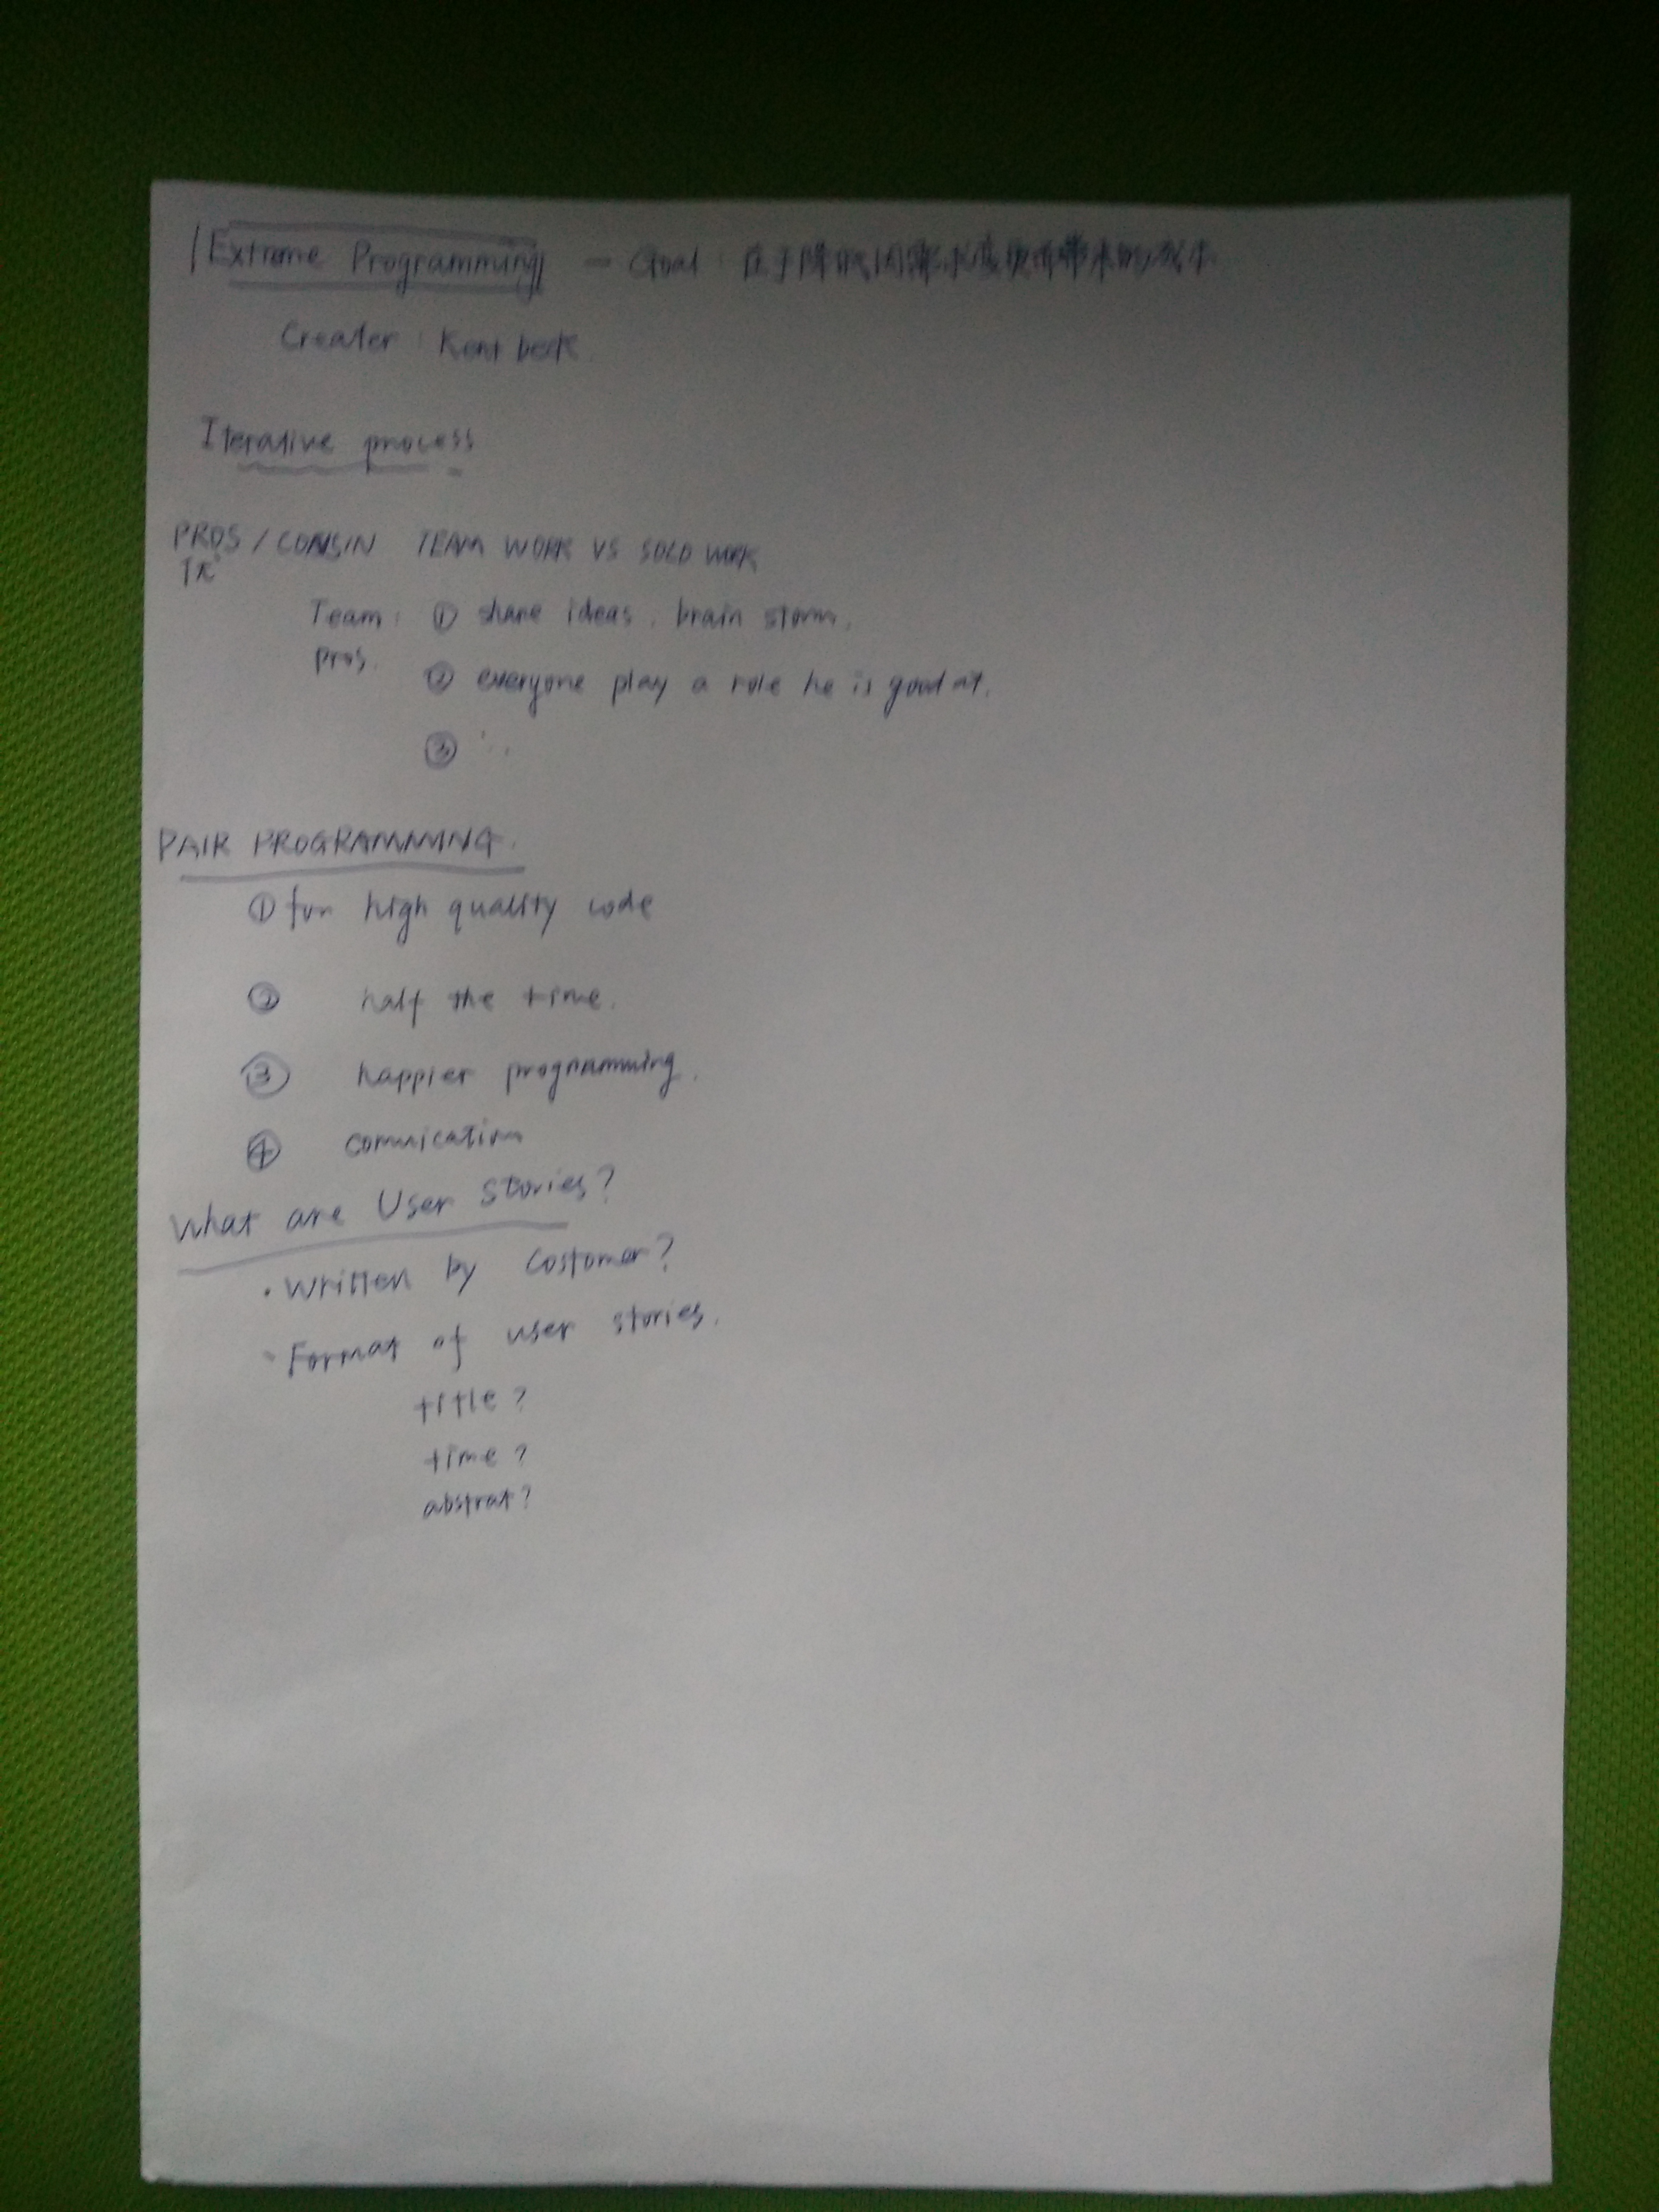 Extreme Programming — Goal: 在于降低因需求变更而带来的成本
Creater: Kent beck
Iterative process
PROS / CONSIN TEAM WORK VS SOLO WORK
Team: ① share ideas, brain storm.
pros.
② everyone play a role he is good at.
③ ...
PAIR PROGRAMMING.
① for high quality code
② half the time.
③ happier programming.
④ comunication
What are User Stories?
· Written by Costomer?
· Format of user stories.
title?
time?
abstrat?